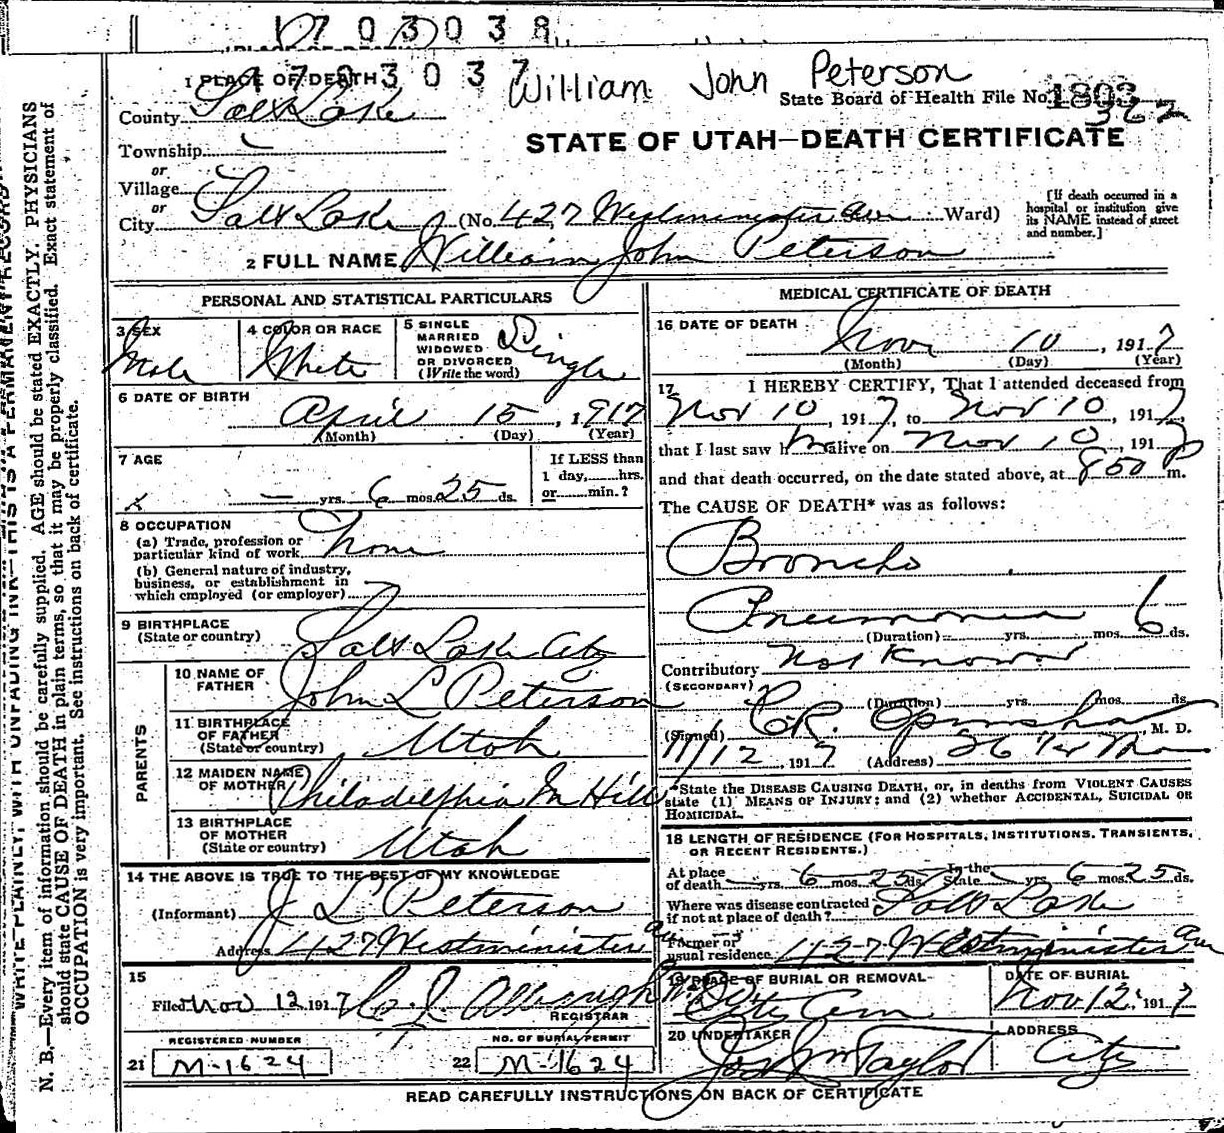 1703038
1703037
William John Peterson
1 PLACE OF DEATH
State Board of Health File No. 1803
362
County Salt Lake
STATE OF UTAH—DEATH CERTIFICATE
Township
or
Village
or
City Salt Lake (No. 427 Westminster Ave Ward)
[If death occurred in a hospital or institution give its NAME instead of street and number.]
2 FULL NAME William John Peterson
PERSONAL AND STATISTICAL PARTICULARS
3 SEX Male
4 COLOR OR RACE White
5 SINGLE MARRIED WIDOWED OR DIVORCED (Write the word) Single
6 DATE OF BIRTH
April 15, 1917
(Month) (Day) (Year)
7 AGE
— yrs. 6 mos. 25 ds.
If LESS than 1 day, hrs. or min.?
8 OCCUPATION
(a) Trade, profession or particular kind of work None
(b) General nature of industry, business, or establishment in which employed (or employer)
9 BIRTHPLACE (State or country) Salt Lake City
PARENTS
10 NAME OF FATHER John L Peterson
11 BIRTHPLACE OF FATHER (State or country) Utah
12 MAIDEN NAME OF MOTHER Philadelphia M Hill
13 BIRTHPLACE OF MOTHER (State or country) Utah
14 THE ABOVE IS TRUE TO THE BEST OF MY KNOWLEDGE
(Informant) J L Peterson
Address 427 Westminister av
15
Filed Nov 12 1917
REGISTRAR
REGISTERED NUMBER
21 M-1624
NO. OF BURIAL PERMIT
22 M-1624
MEDICAL CERTIFICATE OF DEATH
16 DATE OF DEATH
Nov 10, 1917
(Month) (Day) (Year)
17 I HEREBY CERTIFY, That I attended deceased from
Nov 10, 1917, to Nov 10, 1917,
that I last saw him alive on Nov 10, 1917
and that death occurred, on the date stated above, at 850 P m.
The CAUSE OF DEATH* was as follows:
Broncho
Pneumonia
(Duration) yrs. mos. 6 ds.
Contributory Not Known
(SECONDARY)
(Duration) yrs. mos. ds.
(Signed) C.R. M. D.
11/12, 1917 (Address)
*State the DISEASE CAUSING DEATH, or, in deaths from VIOLENT CAUSES
state (1) MEANS OF INJURY; and (2) whether ACCIDENTAL, SUICIDAL OR
HOMICIDAL.
18 LENGTH OF RESIDENCE (FOR HOSPITALS, INSTITUTIONS, TRANSIENTS,
OR RECENT RESIDENTS.)
At place of death — yrs. 6 mos. 25 ds. In the State — yrs. 6 mos. 25 ds.
Where was disease contracted if not at place of death? Salt Lake
Former or usual residence 427 Westminister av
19 PLACE OF BURIAL OR REMOVAL City Cem
DATE OF BURIAL Nov 12 1917
20 UNDERTAKER Jos Wm Taylor
ADDRESS City
READ CAREFULLY INSTRUCTIONS ON BACK OF CERTIFICATE
WRITE PLAINLY, WITH UNFADING INK—THIS IS A PERMANENT RECORD
N. B.—Every item of information should be carefully supplied. AGE should be stated EXACTLY. PHYSICIANS
should state CAUSE OF DEATH in plain terms, so that it may be properly classified. Exact statement of
OCCUPATION is very important. See instructions on back of certificate.